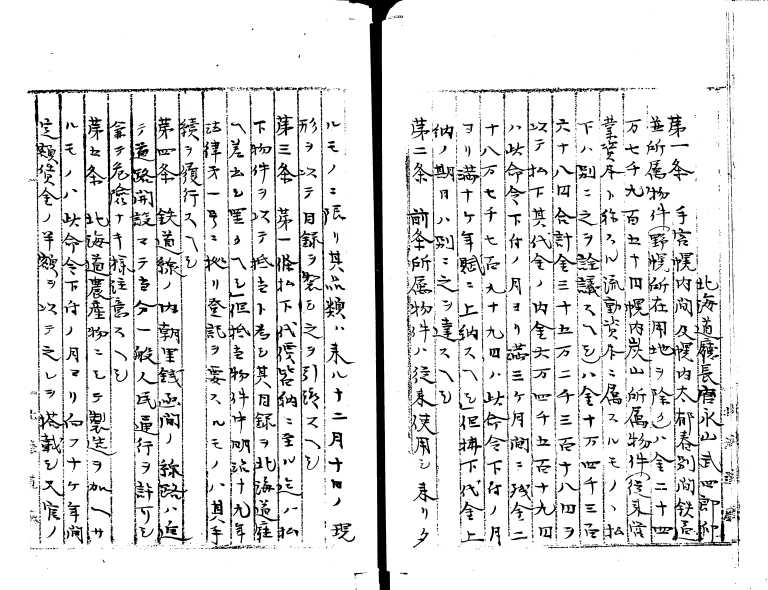 北海道庁長官永山武四郎
第一条 手宮幌内間及幌内太郁春別間鉄道
並所属物件(野幌所在用地ヲ除ク)ハ金二十四
万七千九百五十四幌内炭山所属物件(従来官
業資本ト称スル流動資本ニ属スルモノハ払
下ハ別ニ之ヲ詮議スヘシ)ハ金十万四千三百
六十八円合計金三十五万二千三百十八円ヲ
以テ払下其代金ノ内金六万四千五百十九円
ハ此命令下付ノ月ヨリ満三ヶ月間ニ残金二
十八万七千七百九十九円ハ此命令下付ノ月
ヨリ満十ヶ年賦ニ上納スヘシ但払下代金上
納ノ期日ハ別ニ之ヲ達スヘシ
第二条 前条所属物件ハ従来使用シ来リタ
ルモノニ限リ其品類ハ来ル十二月十日ノ現
形ヲ以テ目録ヲ製シ之ヲ引渡スヘシ
第三条 第一条払下代価皆納ニ至ル迄ハ払
下物件ヲ以テ抵当ト為シ其目録ヲ北海道庁
ヘ差出シ置クヘシ但抵当物件中明治十九年
法律第一号ニ拠リ登記ヲ要スルモノハ其手
続ヲ履行スヘシ
第四条 鉄道線ノ内朝里銭函間ノ線路ハ追
テ道路開設マテ当分一般人民通行ヲ許可シ
危険ナキ様注意スヘシ
第五条 北海道農産物ニシテ製造ヲ加ヘサ
ルモノハ此命令下付ノ月ヨリ向フ十ヶ年間
定額賃金ノ半額ヲ以テ之レヲ搭載シ又官ノ